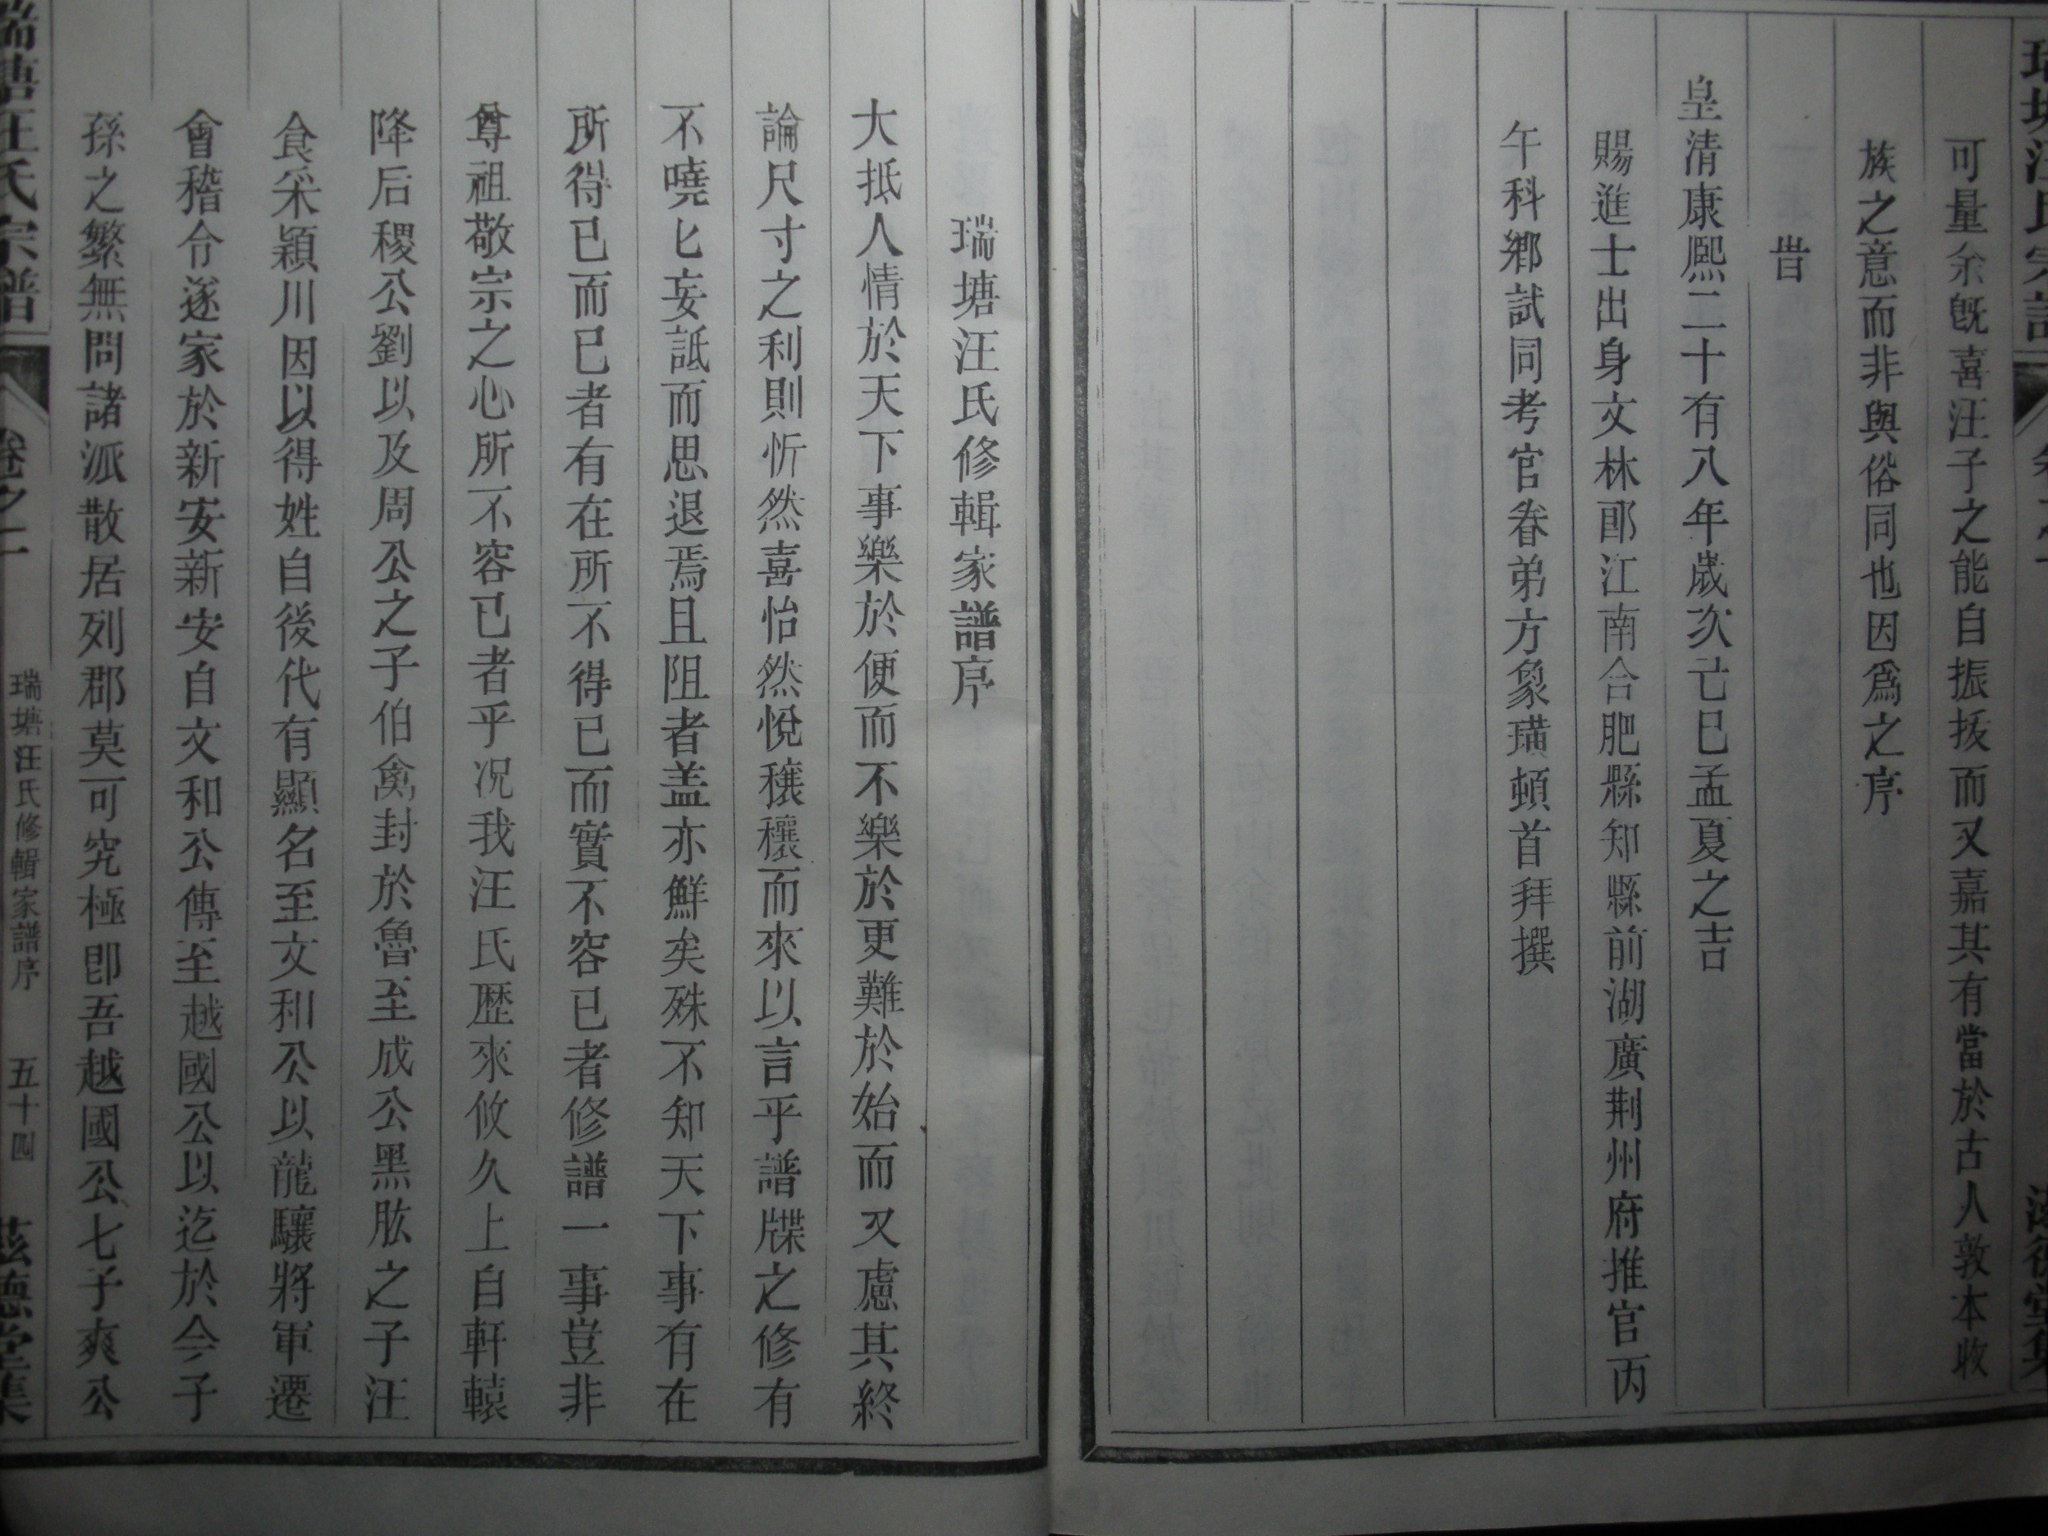 可量余旣喜汪子之能自振拔而又嘉其有當於古人敦本收
族之意而非與俗同也因爲之序
旹
皇清康熙二十有八年歲次己巳孟夏之吉
賜進士出身文林郎江南合肥縣知縣前湖廣荆州府推官丙
午科鄉試同考官眷弟方象璜頓首拜撰
瑞塘汪氏修輯家譜序
大抵人情於天下事樂於便而不樂於更難於始而又慮其終
論尺寸之利則忻然喜怡然悅穰穰而來以言乎譜牒之修有
不嘵匕妄詆而思退焉且阻者盖亦鮮矣殊不知天下事有在
所得已而已者有在所不得已而實不容已者修譜一事豈非
尊祖敬宗之心所不容已者乎况我汪氏歷來攸久上自軒轅
降后稷公劉以及周公之子伯禽封於魯至成公黑肱之子汪
食采潁川因以得姓自後代有顯名至文和公以龍驤將軍遷
會稽令遂家於新安新安自文和公傳至越國公以迄於今子
孫之繁無問諸派散居列郡莫可究極卽吾越國公七子爽公
瑞塘汪氏宗譜
卷之一
瑞塘汪氏修輯家譜序
五十四